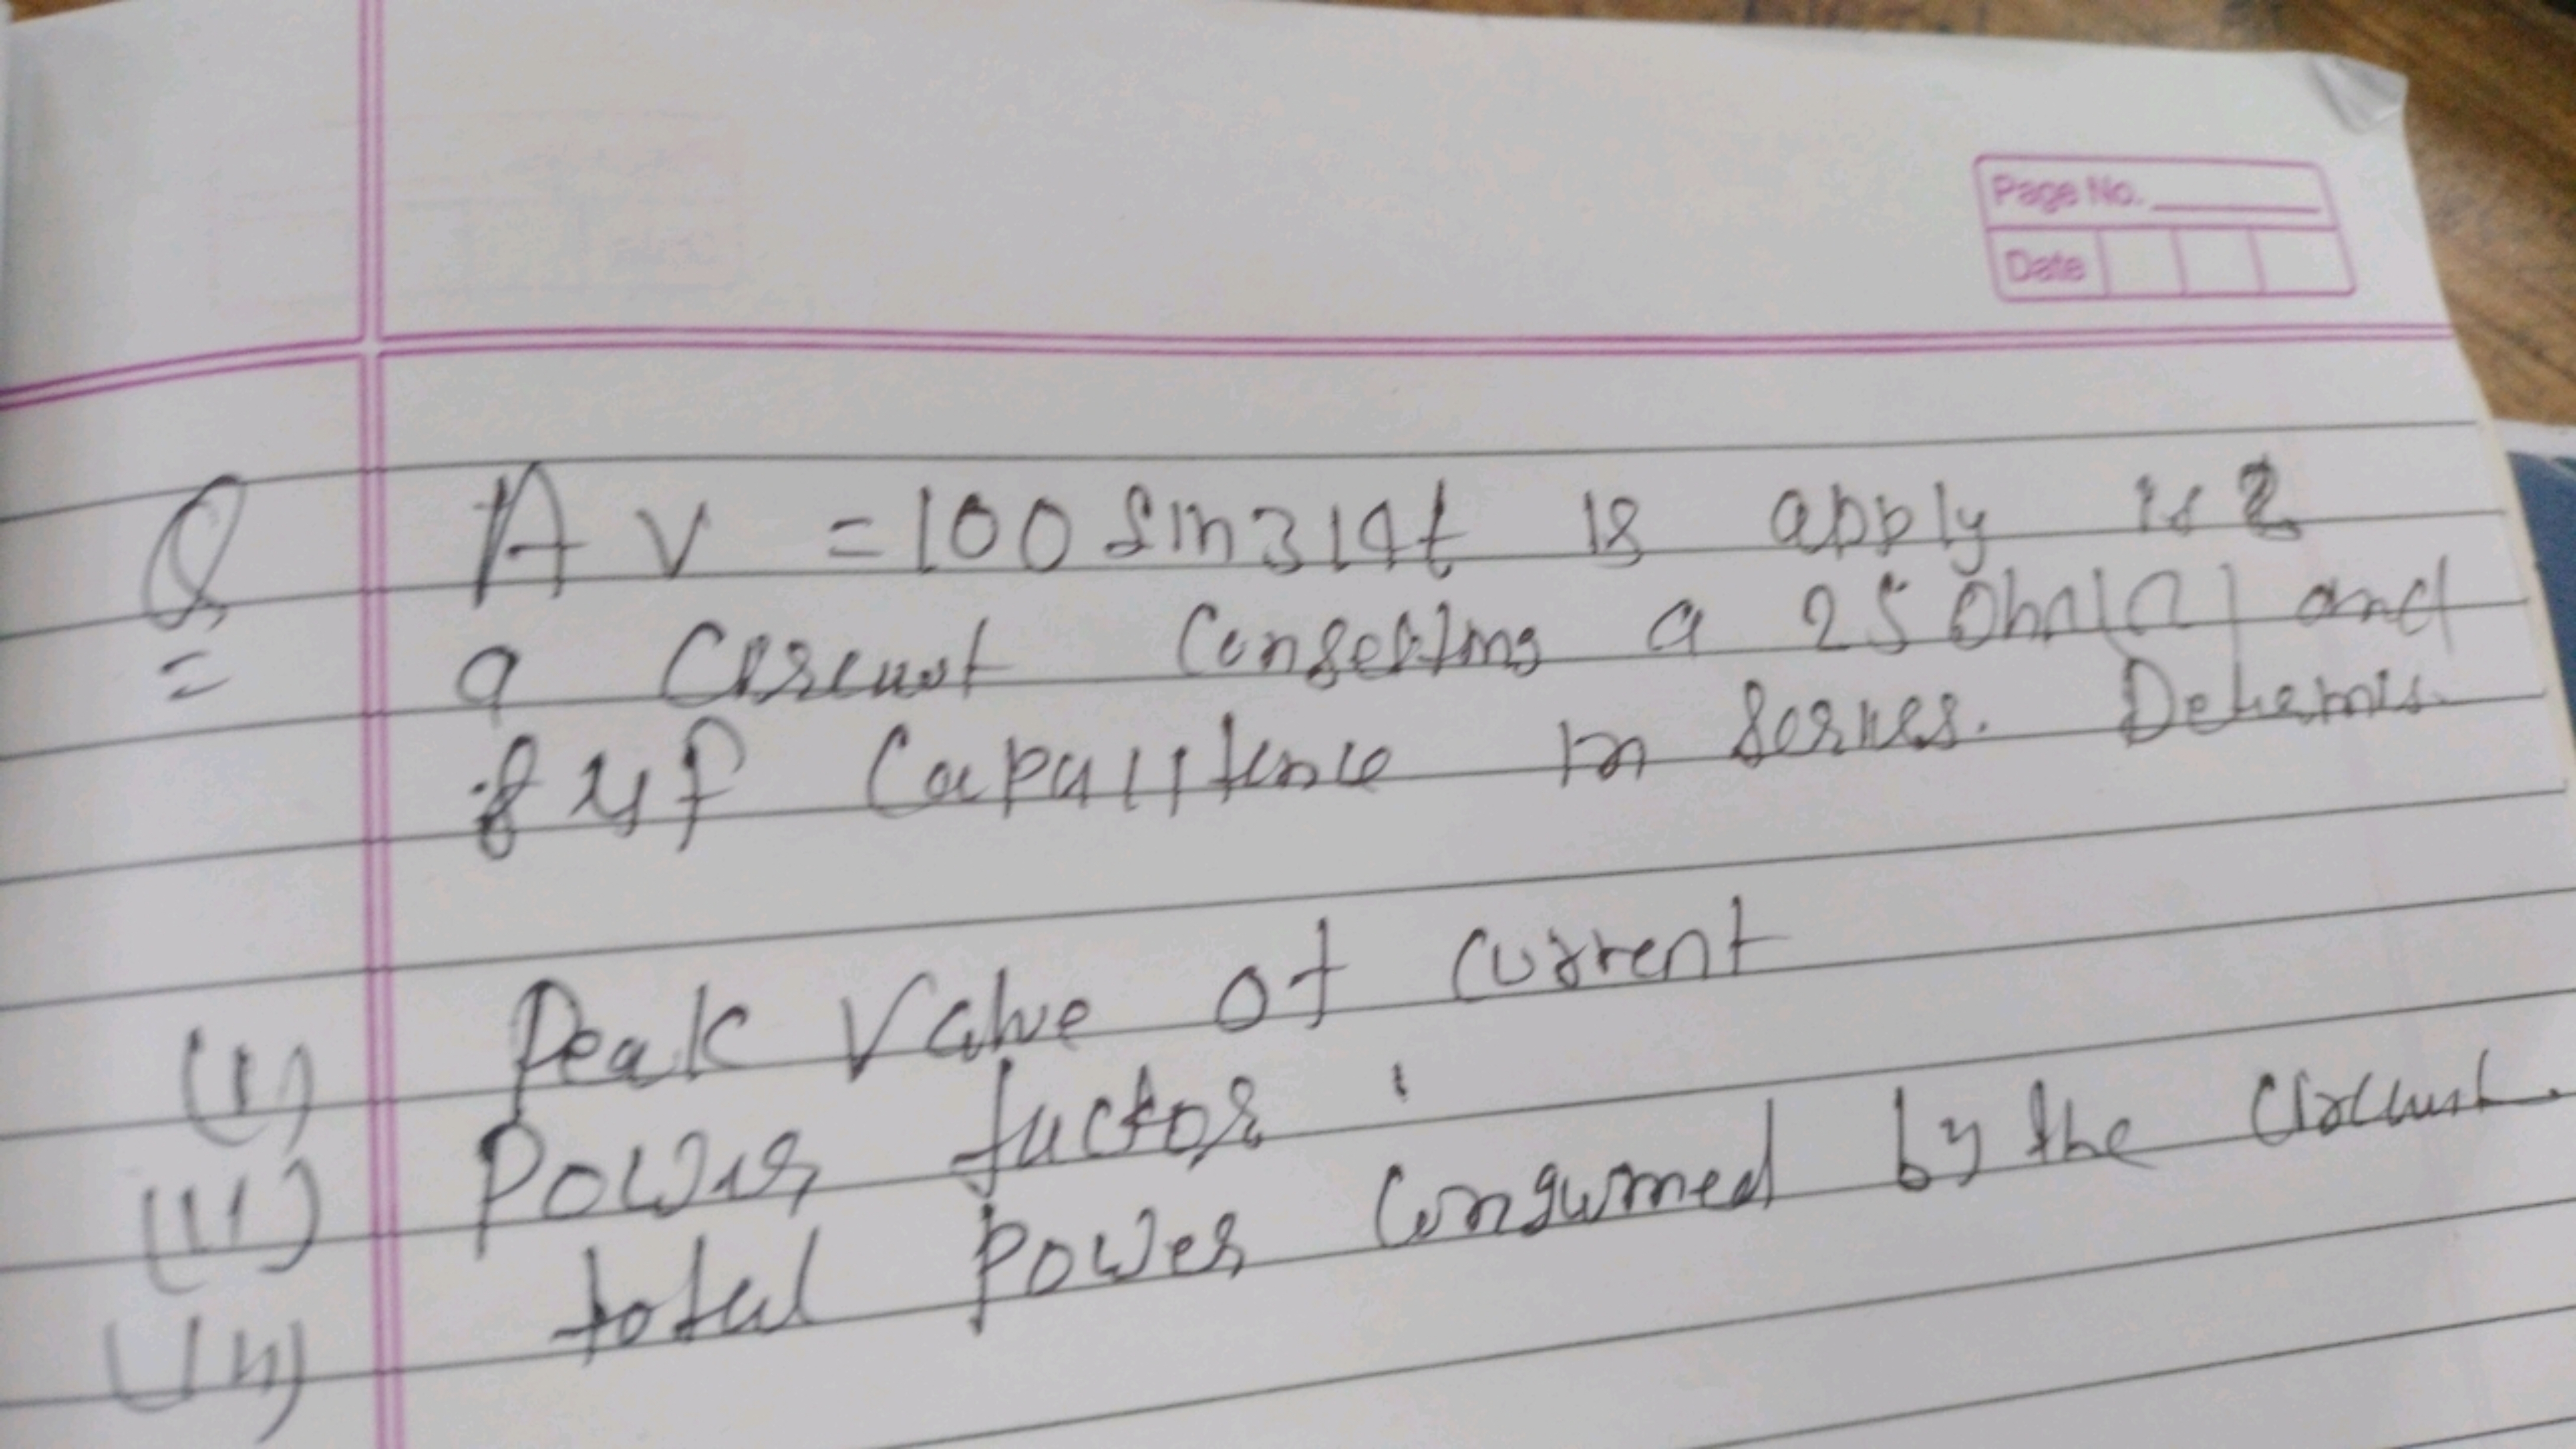 Page No.
Date
Q A V = 100 Sin 314t is apply is
= a Circuit Consesting a 25 Ohm(Ω) and
μf Capacitence in Series. Determis.
(i) Peak Value of Current
(ii) Power factor :
(iii) total Power Consumed by the Circuit.